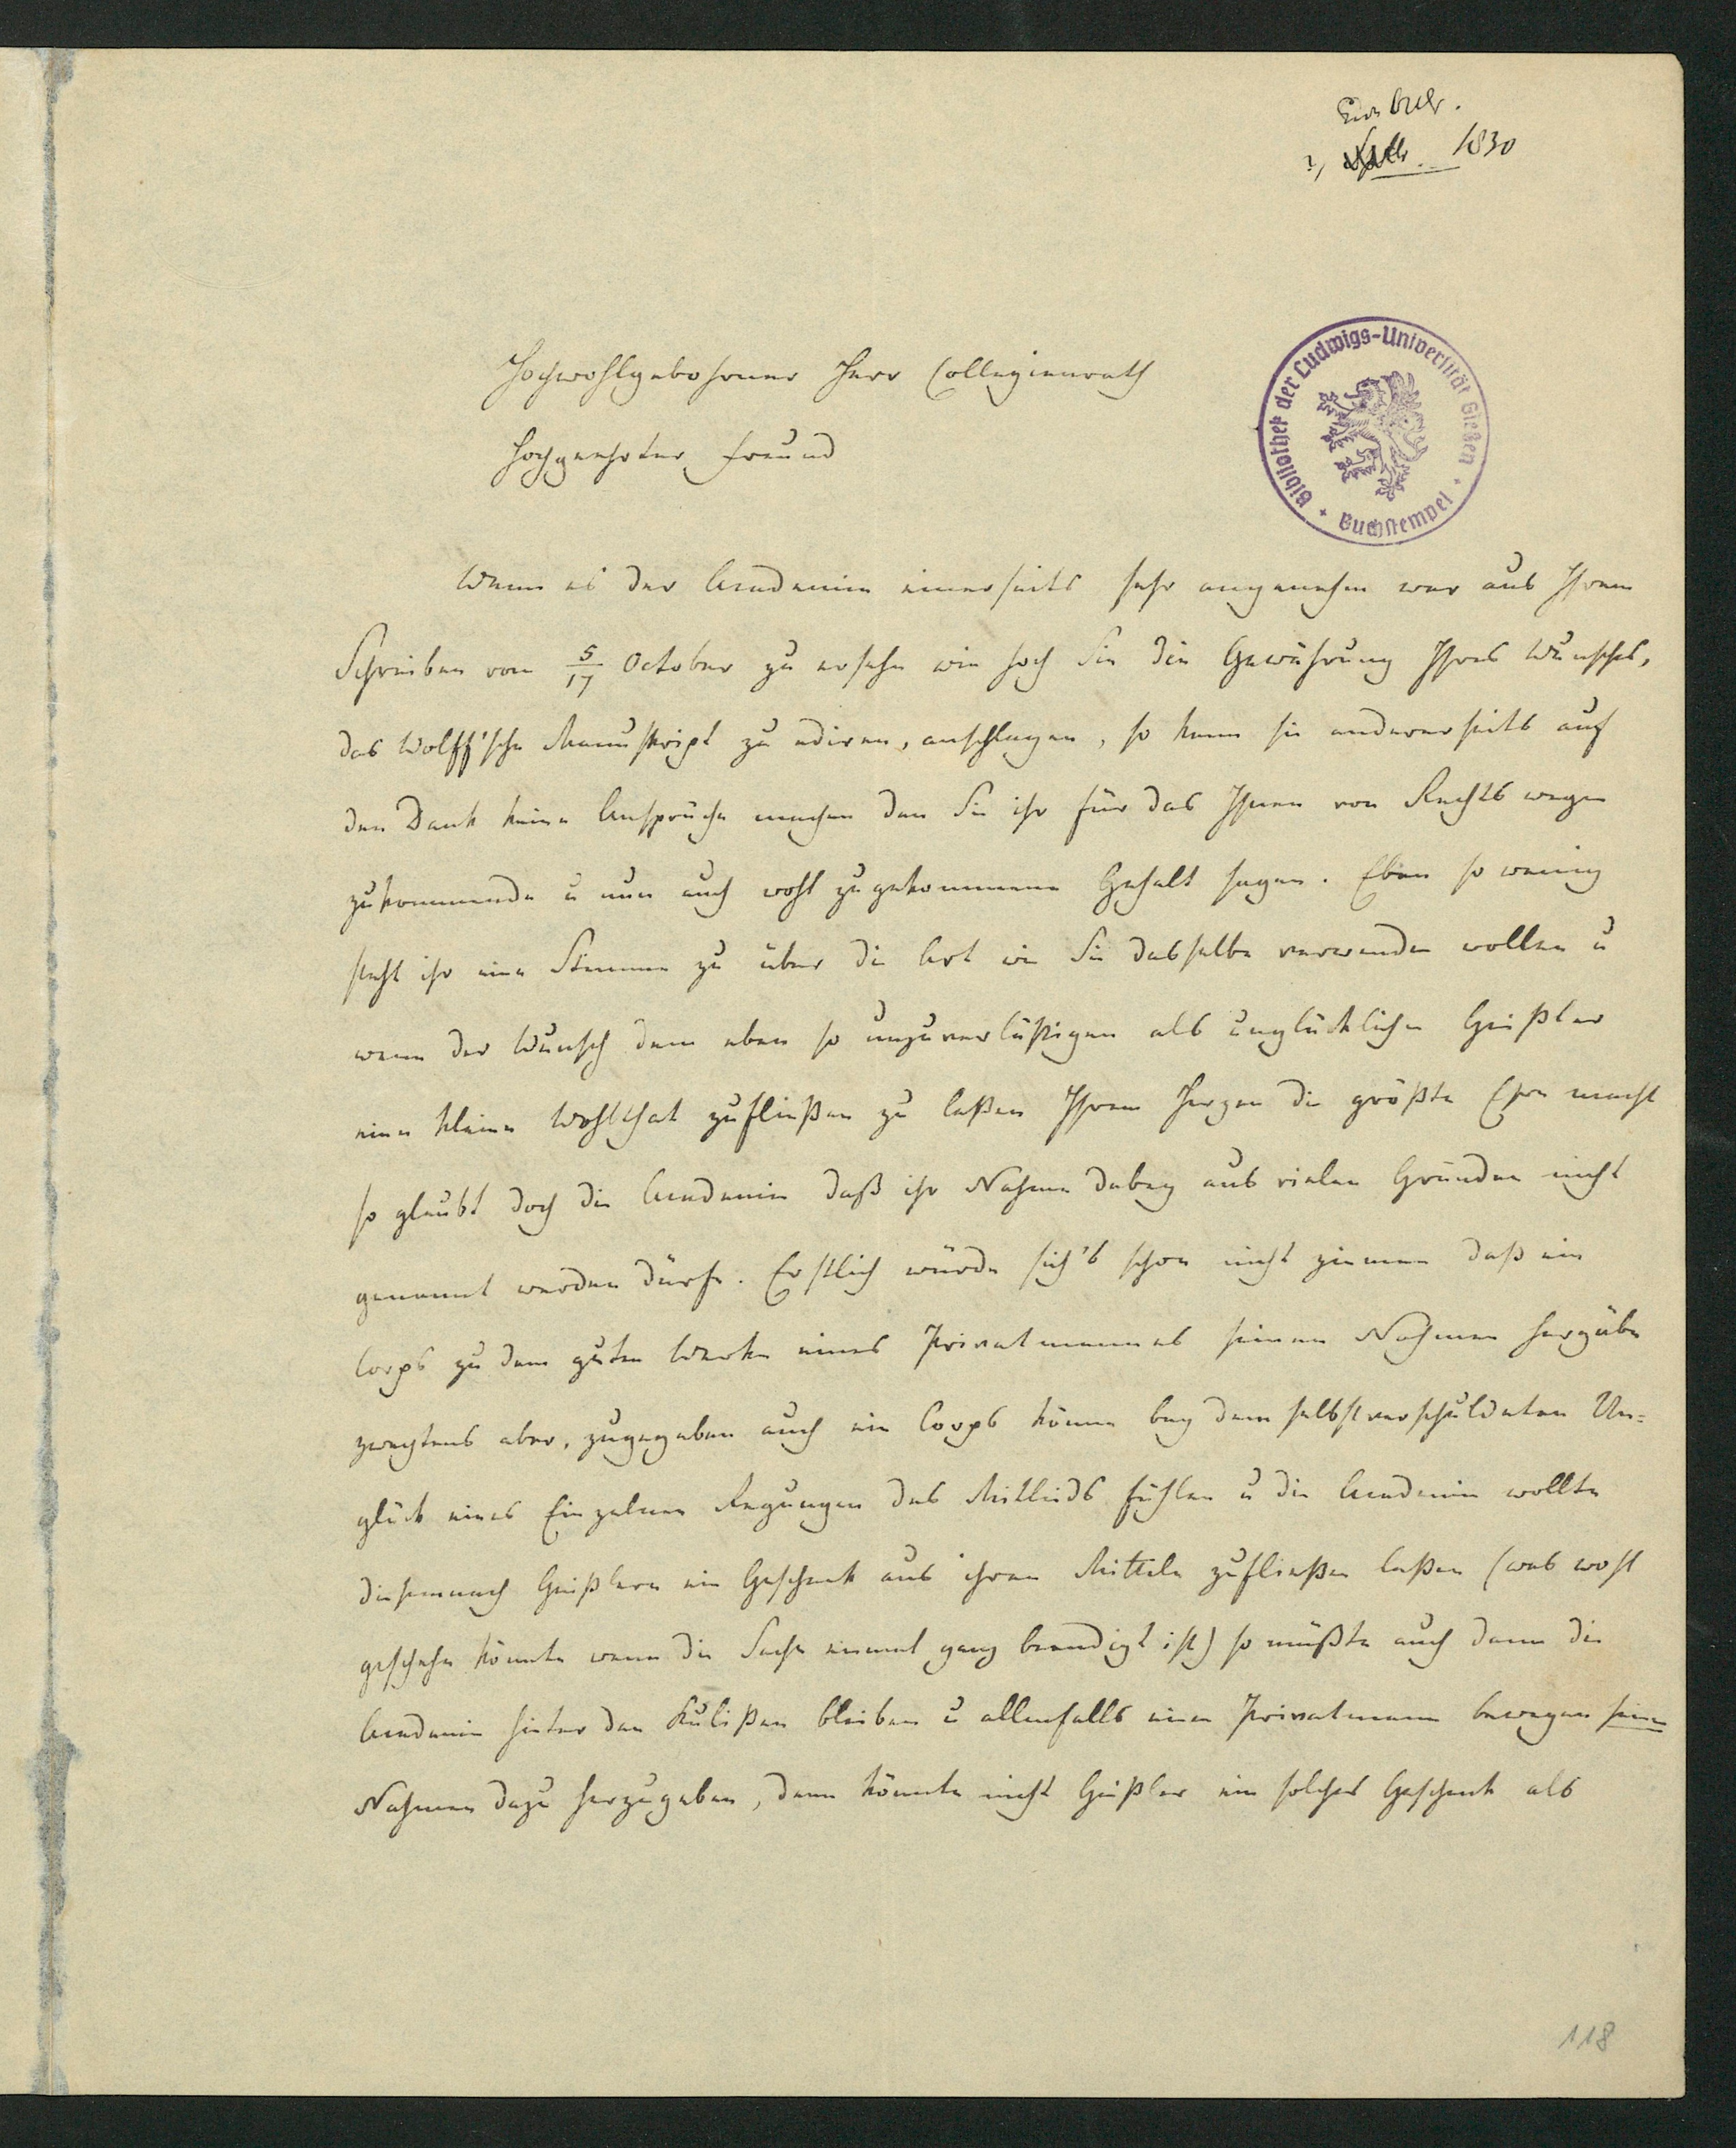 1830
Hochwohlgebohrner Herr Collegienrath
Hochgeehrter Freund
Bibliothek der Ludwigs-Universität Gießen
Buchstempel
Wenn es der Academie einerseits sehr angenehm war aus Ihrem
Schreiben vom 5/17 October zu ersehn wie hoch Sie die Gewährung Ihres Wunsches,
das Wolff'sche Manuskript zu ediren, anschlagen, so kann sie andererseits auf
den Dank keine Ansprüche machen den Sie ihr für das Ihnen von Rechts wegen
zukommende u nun auch wohl zugekommene Gehalt sagen. Eben so wenig
steht ihr eine Stimme zu über die Art wie Sie dasselbe verwenden wollen u
wenn der Wunsch dem eben so unzuverläßigen als unglücklichen Geißler
eine kleine Wohlthat zufließen zu laßen Ihrem Herzen die größte Ehre macht
so glaubt doch die Academie daß ihr Nahme dabey aus vielen Gründen nicht
genannt werden dürfe. Erstlich würde sich's schon nicht ziemen daß ein
Corps zu dem guten Werke eines Privatmannes seinen Nahmen hergäbe
zweytens aber, zugegeben auch ein Corps könne bey dem selbstverschuldeten Un-
glück eines Einzelnen Regungen des Mitleids fühlen u die Academie wollte
diesemnach Geißlern ein Geschenk aus ihren Mitteln zufließen laßen (was wohl
geschehn könnte wenn die Sache einmal ganz beendigt ist) so müßte auch dann die
Academie hinter den Kulißen bleiben u allenfalls einen Privatmann bewegen seinen
Nahmen dazu herzugeben, denn könnte nicht Geißler ein solches Geschenk als
118